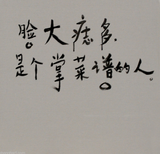 脸大痣多。
是个掌菜谱的人。